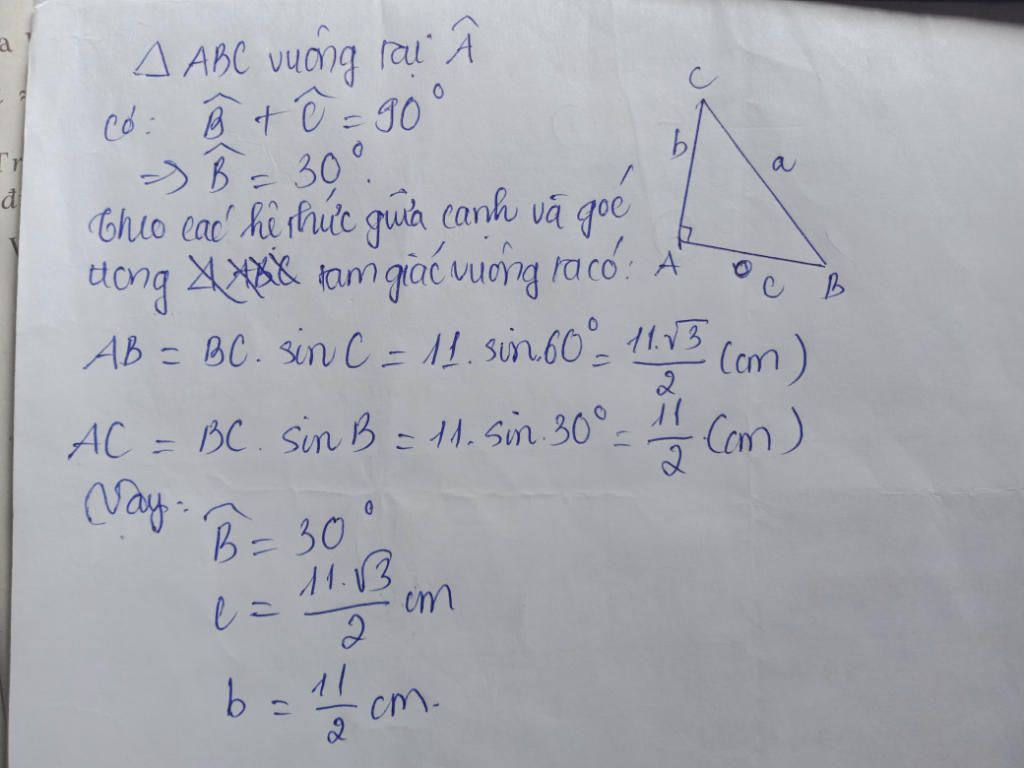 Δ ABC vuông tại Â
có: B̂ + Ĉ = 90°
=> B̂ = 30°.
theo các hệ thức giữa cạnh và góc
trong tam giác vuông ta có:
AB = BC. sin C = 11. sin.60° = 11.√3/2 (cm)
AC = BC. sin B = 11. sin.30° = 11/2 (cm)
Vậy:
B̂ = 30°
c = 11.√3/2 cm
b = 11/2 cm.
C
b
a
A
c
B